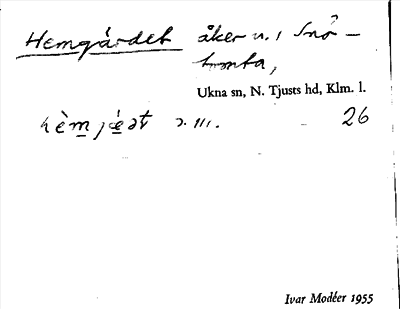 Hemgärdet åker n. i Snö-
tomta,
Ukna sn, N. Tjusts hd, Klm. l.
26
Ivar Modéer 1955